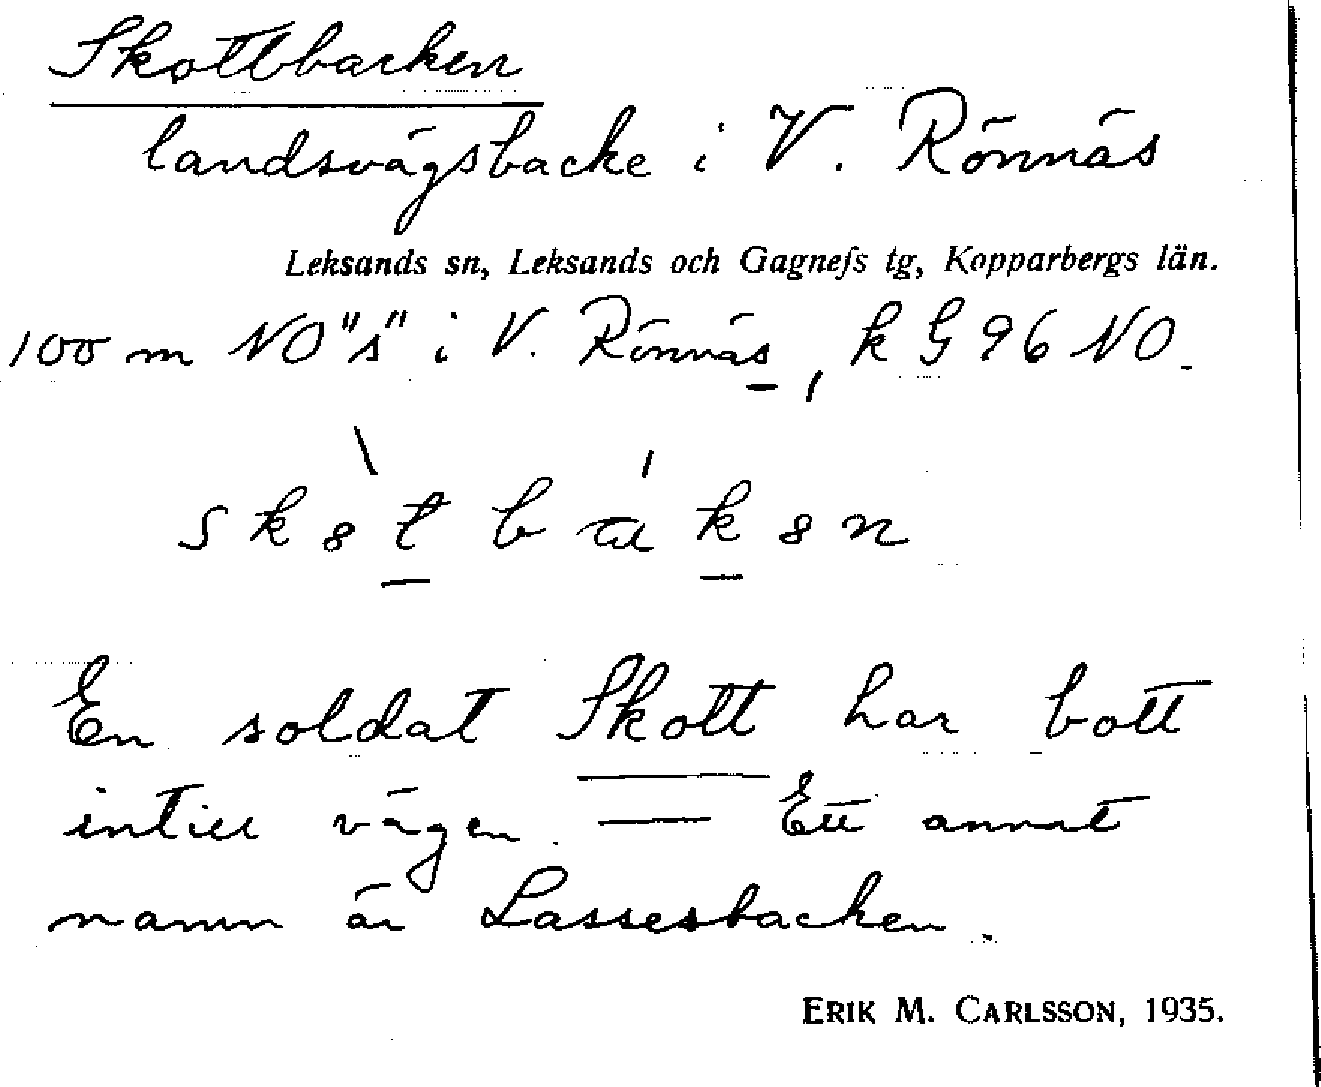 Skottbacken
landsvägsbacke i V. Rönnäs
Leksands sn, Leksands och Gagnefs tg, Kopparbergs län.
100 m NO "s" i V. Rönnäs, k G 96 NO
En soldat Skott har bott
intill vägen. — Ett annat
namn är Lassesbacken.
ERIK M. CARLSSON, 1935.